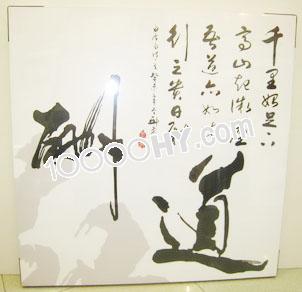 千里始足下
高山起微尘
吾道亦如此
行之贵日新
道
酬
10000HY.COM